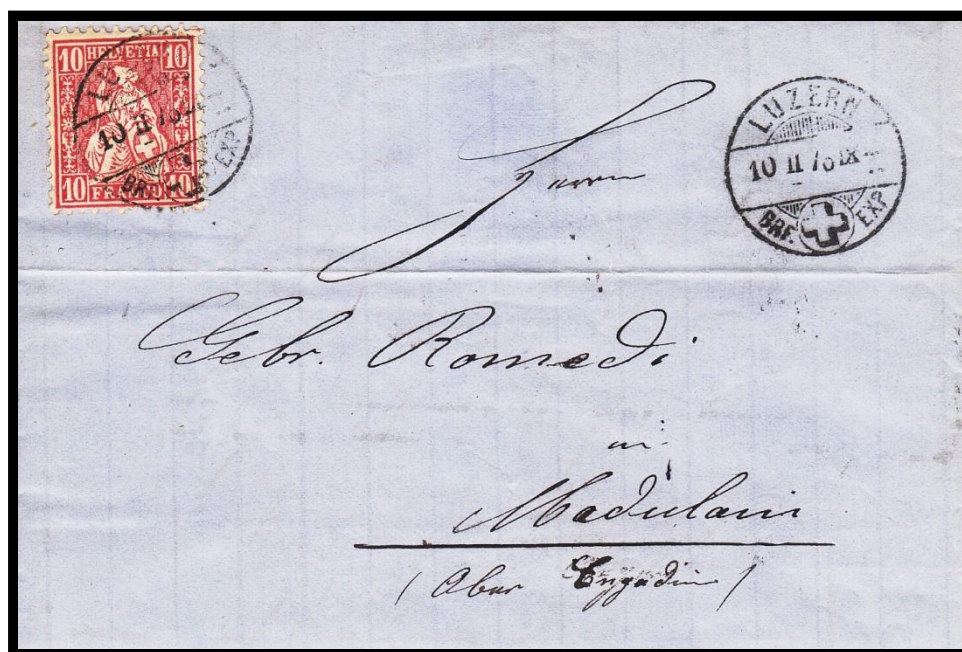 10 HELVETIA 10
10 FRANCO 10
LUZERN
10 II 76 IX
BRF. EXP.
LUZERN
10 II 76
BRF. EXP.
Herren
Gebr. Romedi
in
Madulain
(Ober Engadin)